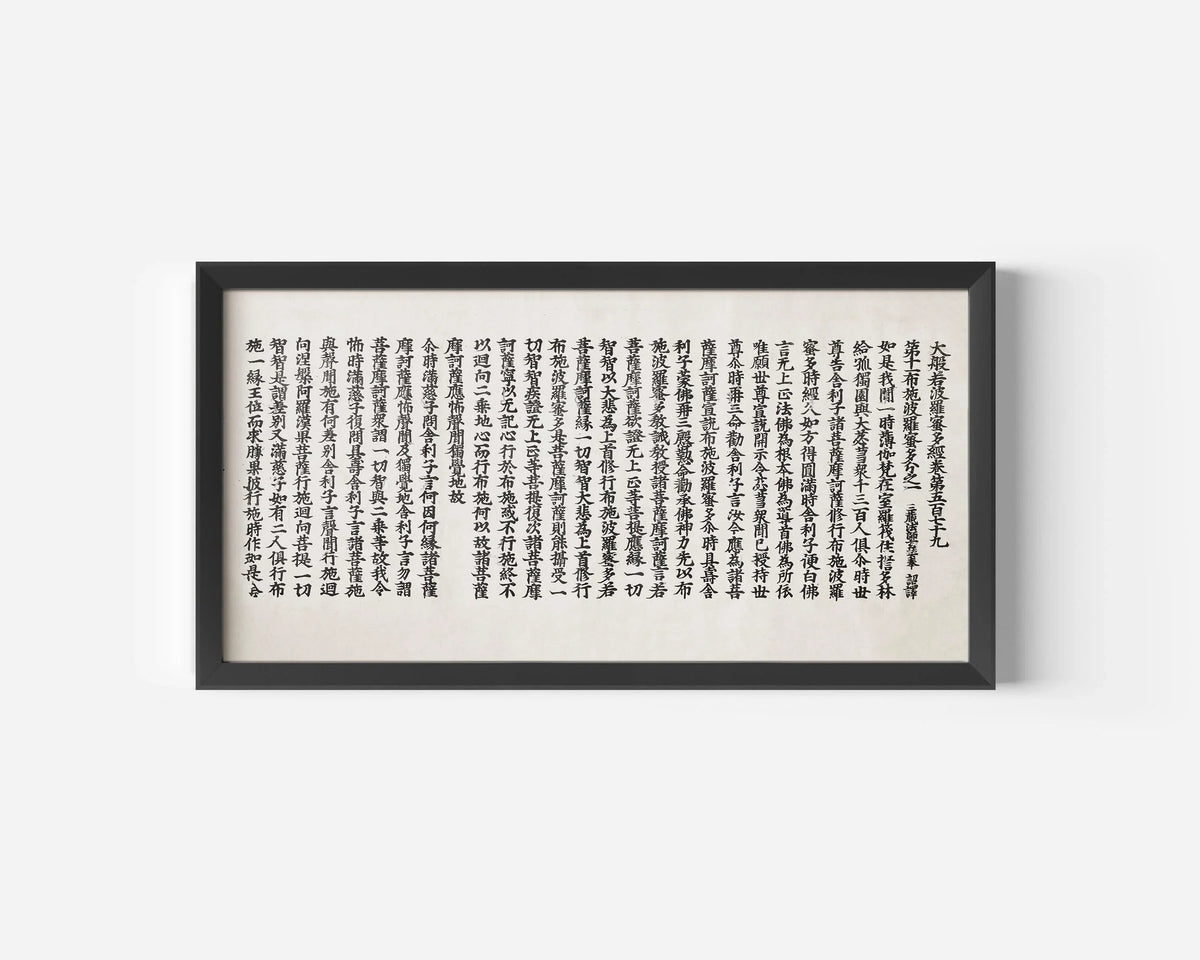 大般若波羅蜜多經卷第五百七十九
第十布施波羅蜜多分之一 三藏法師玄奘奉 詔譯
如是我聞一時薄伽梵在室羅筏住誓多林
給孤獨園與大苾芻衆千二百人俱尒時世
尊告舍利子諸菩薩摩訶薩修行布施波羅
蜜多時經久如方得圓滿時舍利子便白佛
言无上正法佛為根本佛為導首佛為所依
唯願世尊宣說開示令苾芻衆聞已授持世
尊尒時再三命勸舍利子言汝今應為諸菩
薩摩訶薩宣說布施波羅蜜多尒時具壽舍
利子蒙佛再三慇懃命勸承佛神力先以布
施波羅蜜多教誡教授諸菩薩摩訶薩言若
菩薩摩訶薩欲證无上正等菩提應緣一切
智智以大悲為上首修行布施波羅蜜多若
菩薩摩訶薩緣一切智智大悲為上首修行
布施波羅蜜多是菩薩摩訶薩則能攝受一
切智智疾證无上正等菩提復次諸菩薩摩
訶薩寧以无記心行於布施或不行施終不
以迴向二乘地心而行布施何以故諸菩薩
摩訶薩應怖聲聞獨覺地故
尒時滿慈子問舍利子言何因何緣諸菩薩
摩訶薩應怖聲聞及獨覺地舍利子言勿謂
菩薩摩訶薩衆謂一切智與二乘等故我令
怖時滿慈子復問具壽舍利子言諸菩薩施
與聲聞施有何差別舍利子言聲聞行施迴
向涅槃阿羅漢果菩薩行施迴向菩提一切
智智是謂差別又滿慈子如有二人俱行布
施一緣王位而求勝果彼行施時作如是念